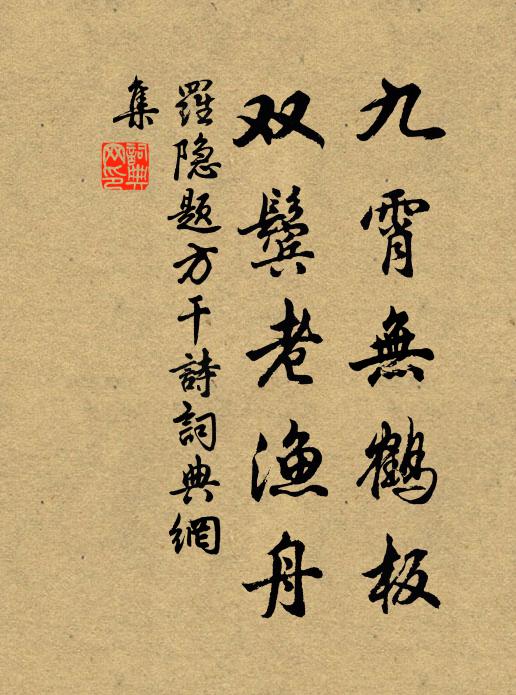 九霄無鶴板
双鬓老漁舟
羅隐题方干詩詞典網
集
詞典网印